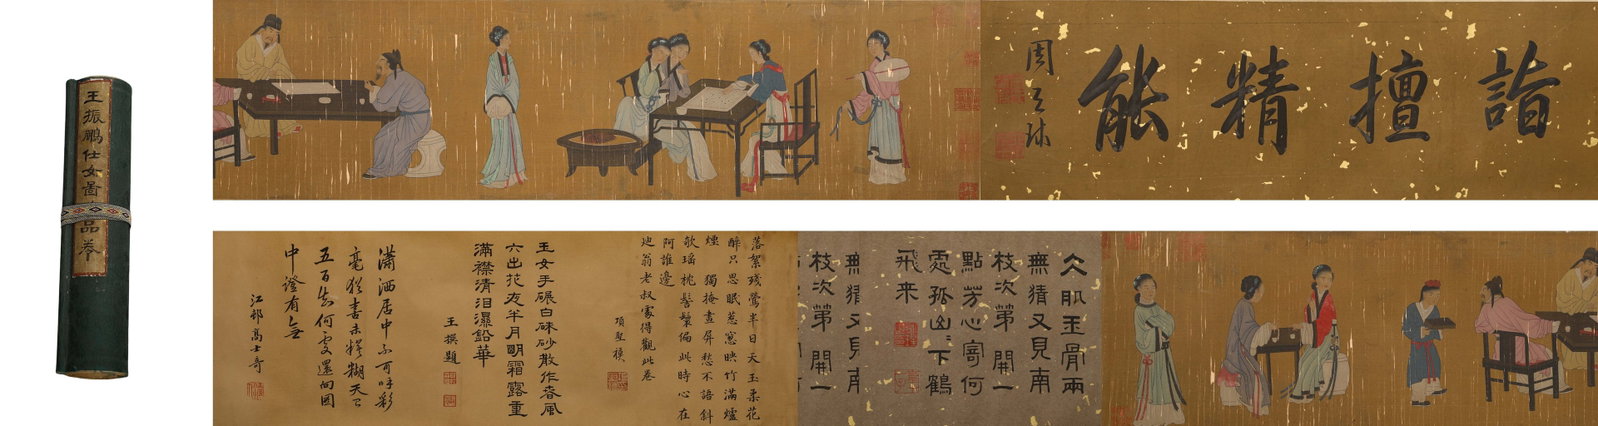 王振鵬仕女圖
品卷
詣擅精能
周天球
仌肌玉骨兩
無猜又見南
枝次第開一
點芳心寄何
處孤山下鶴
飛来
無猜又見南
枝次第開一
落絮殘鶯半日天玉柔花
醉只思眠惹窗映竹滿爐
煙 獨掩畫屏愁不語斜
欹瑤枕髻鬟偏此時心在
阿誰邊
迪翁老叔 得觀此卷
項聖謨
玉女手碾白硃砂散作春風
六出花夜半月明霜露重
滿襟清泪濕鉛華
王撰題
瀟洒居中不可呼彩
毫 書未糢糊天
五百年何處還向圖
中證有無
江邨高士奇